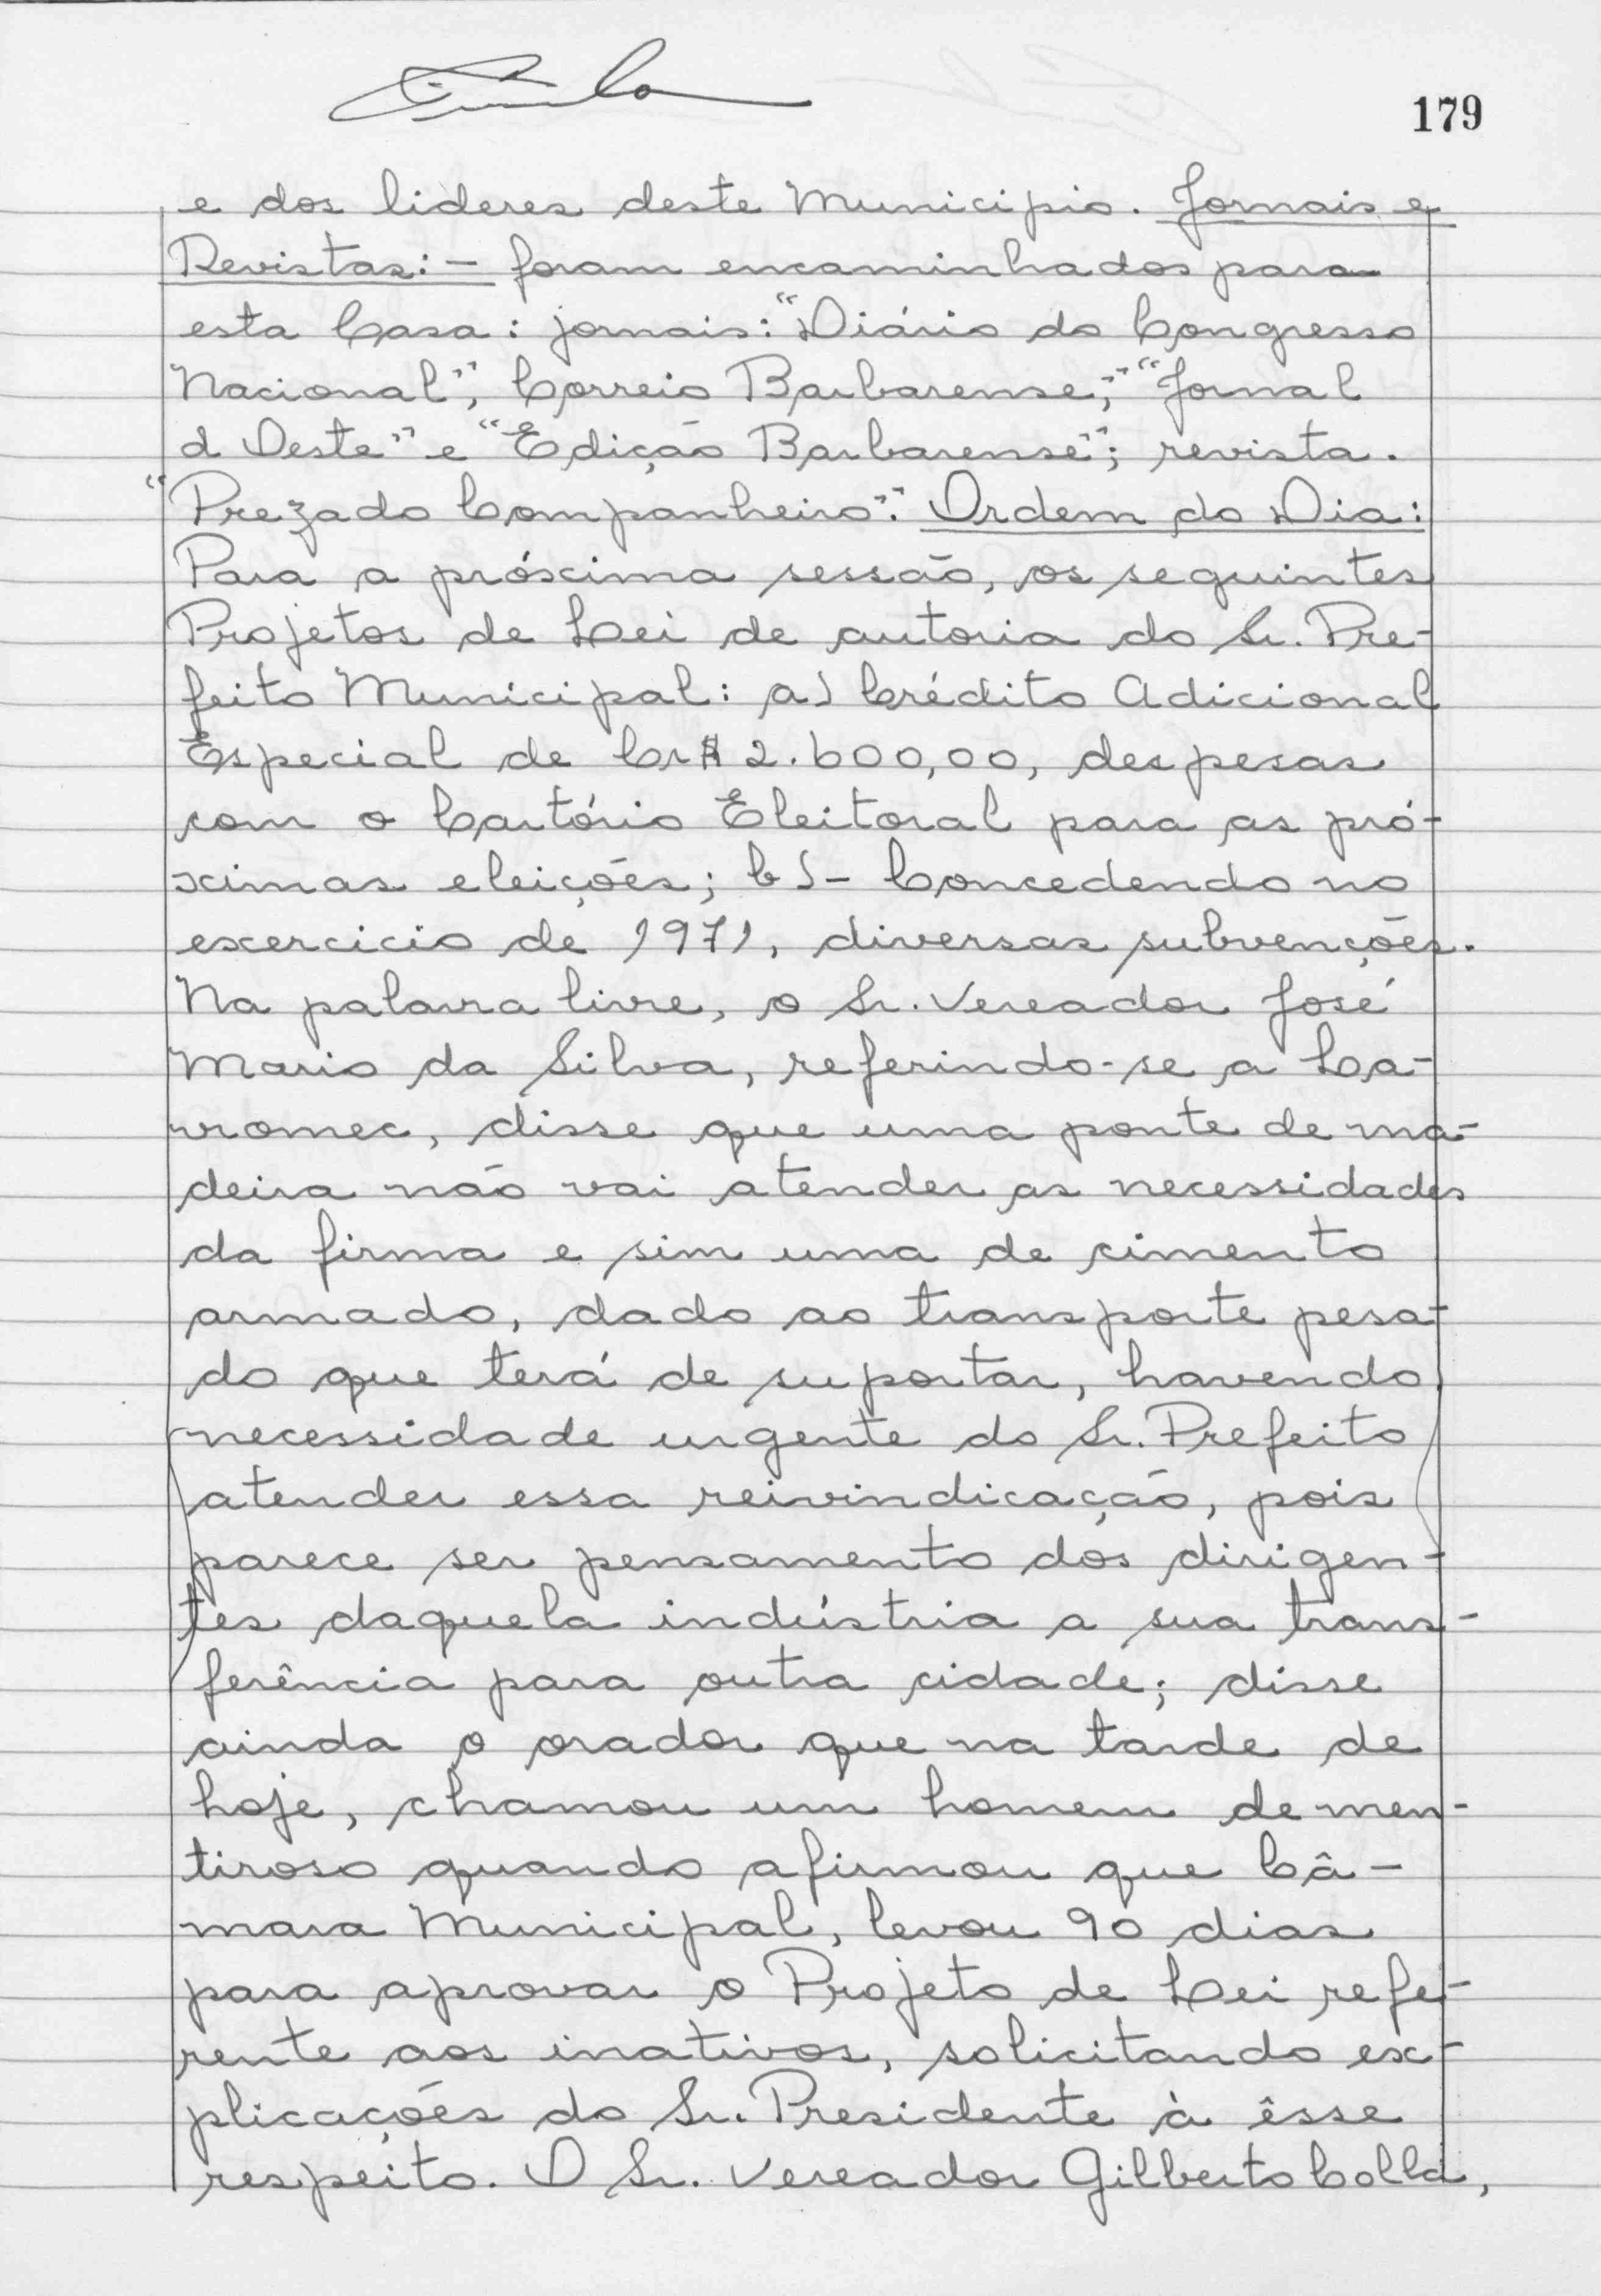 179
e dos lideres deste Municipio. Jornais e
Revistas: - foram encaminhados para
esta Casa: jornais: "Diário do Congresso
Nacional", Correio Barbarense", "Jornal
d Oeste" e "Edição Barbarense"; revista.
"Prezado Companheiro". Ordem do Dia:
Para a próxima sessão, os seguintes
Projetos de Lei de autoria do Sr. Pre-
feito Municipal: a) Crédito Adicional
Especial de Cr$ 2.600,00, despesas
com o Cartório Eleitoral para as pró-
ximas eleições; b)- Concedendo no
exercicio de 1971, diversas subvenções.
Na palavra livre, o Sr. Vereador José
Mario da Silva, referindo-se a La-
vromec, disse que uma ponte de ma-
deira não vai atender as necessidades
da firma e sim uma de cimento
armado, dado ao transporte pesa-
do que terá de suportar, havendo
necessidade urgente do Sr. Prefeito
atender essa reivindicação, pois
parece ser pensamento dos dirigen-
tes daquela indústria a sua trans-
ferência para outra cidade; disse
ainda o orador que na tarde de
hoje, chamou um homem de men-
tiroso quando afirmou que Câ-
mara Municipal, levou 90 dias
para aprovar o Projeto de Lei refe-
rente aos inativos, solicitando ex-
plicações do Sr. Presidente à êsse
respeito. O Sr. Vereador Gilberto Colla,